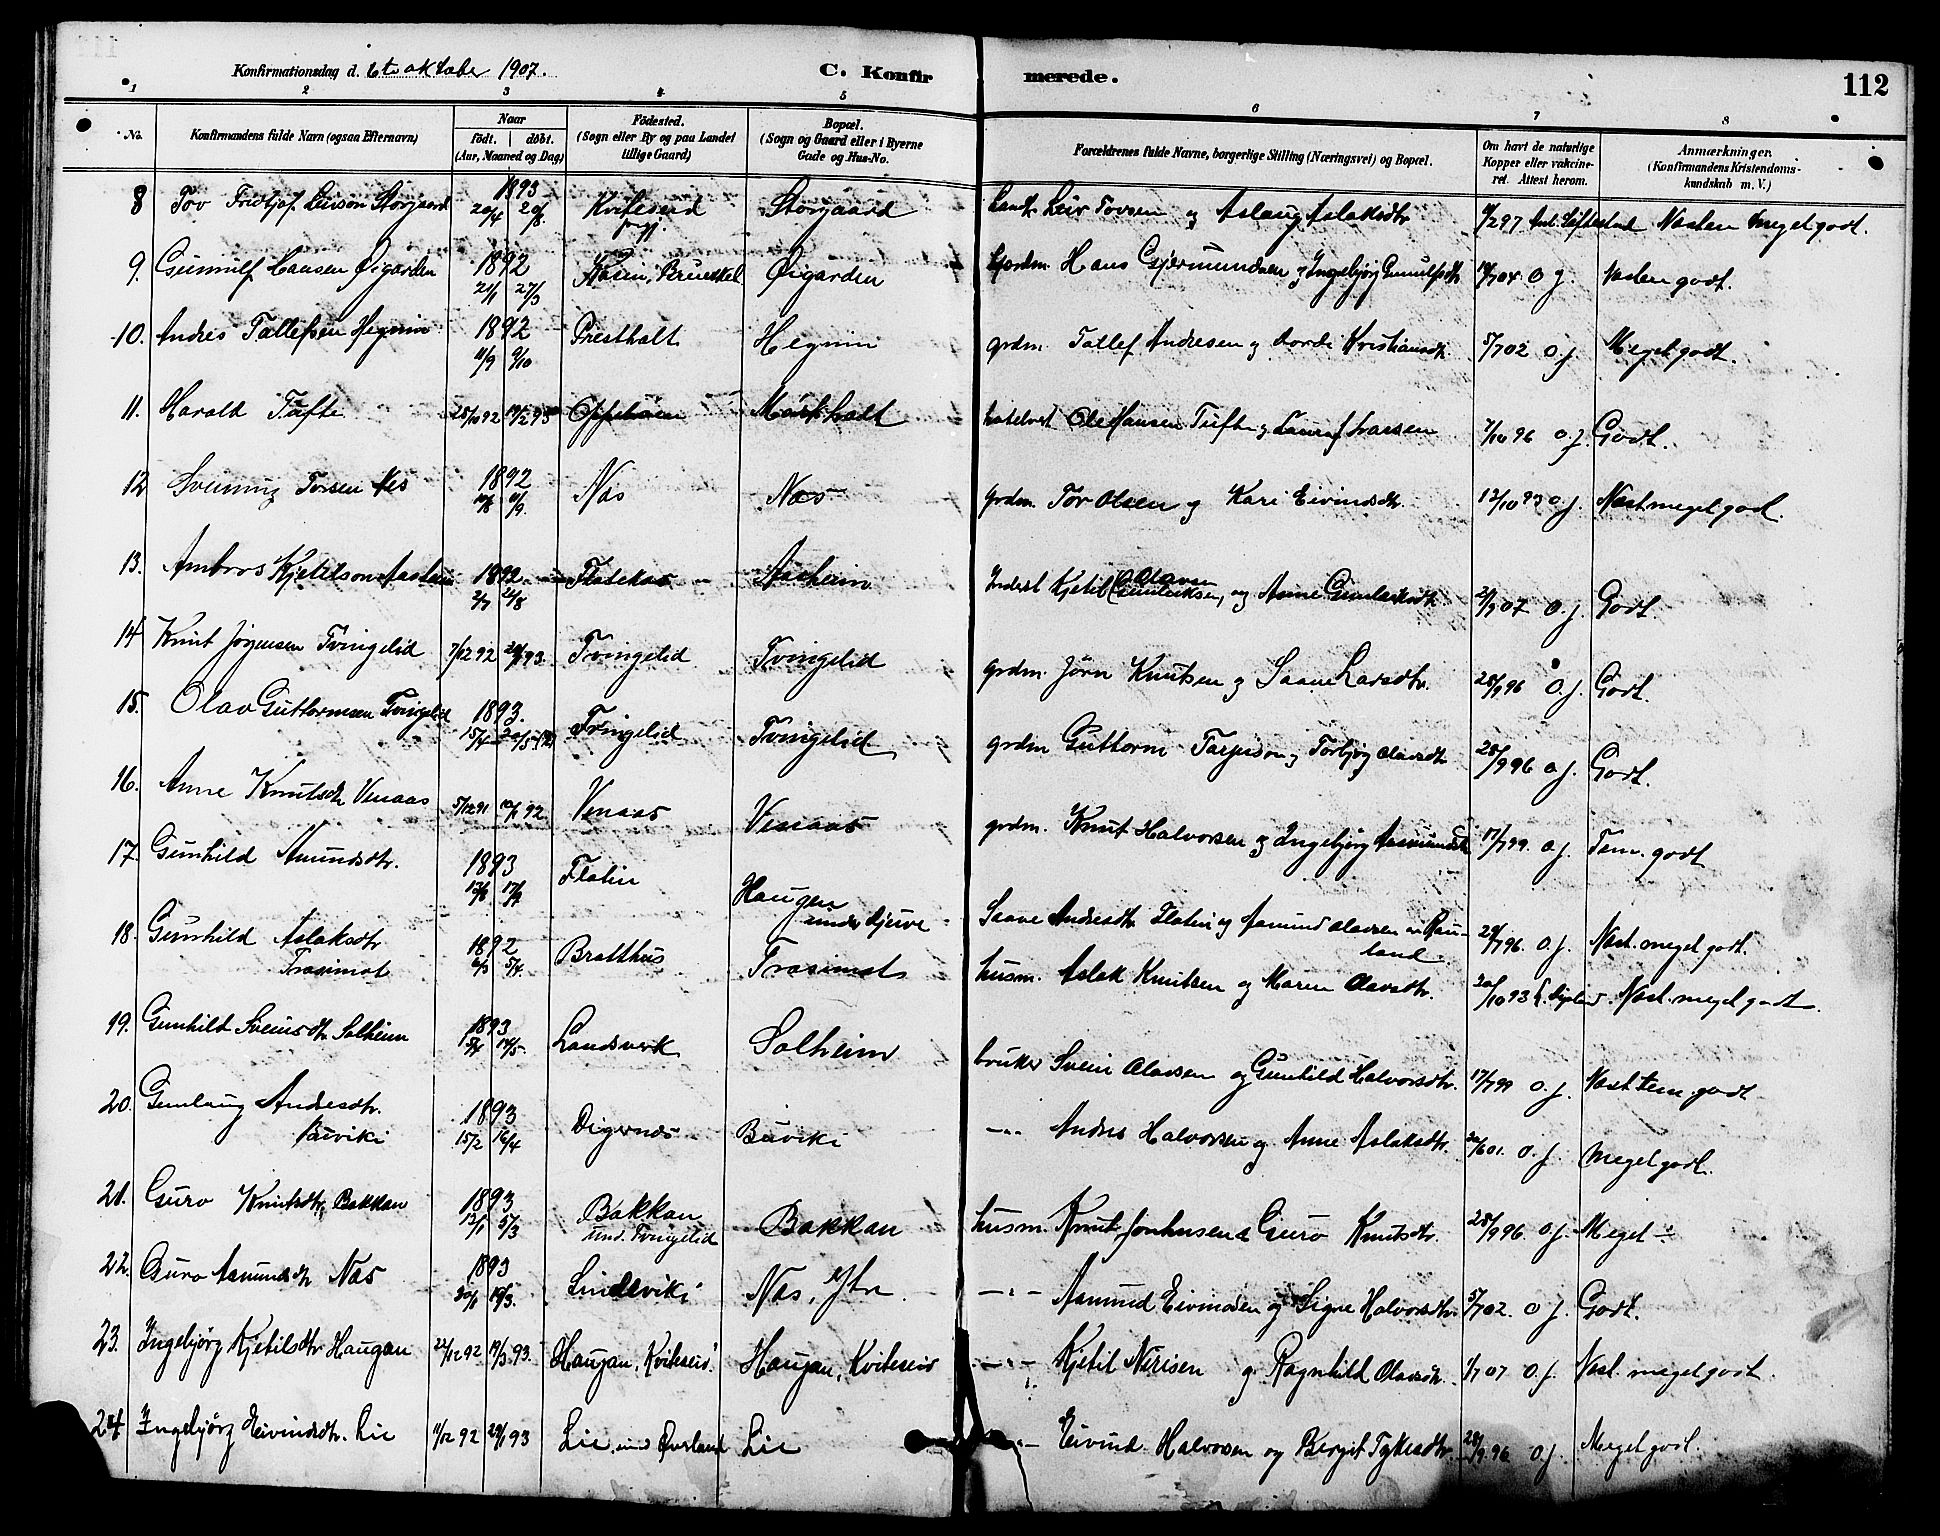 Konfirmationsdag d. 6te oktober 1907. C. Konfir merede. 112
1 2 3 4 5 6 7 8
No. Konfirmandens fulde Navn (ogsaa Efternavn) Naar født. døbt. (Aar, Maaned og Dag) Fødested. (Sogn eller By og paa Landet tillige Gaard) Bopæl. (Sogn og Gaard eller i Byerne Gade og Hus-No. Forældrenes fulde Navne, borgerlige Stilling (Næringsvei) og Bopæl. Om havt de naturlige Kopper eller vakcineret. Attest herom. Anmærkninger. (Konfirmandens Kristendomskundskab m. V.)
8 Tov Fridtjof Leivson Storgaard 1893 20/4 20/8 Kviteseid Storgaard Leiv Tovsen og Aslaug Aslaksdtr Næsten meget godt.
9. Gunnulf Hansen Øigarden 1892 21/1 27/3 Øigarden Hans Gjermundsen og Ingebjørg Gunulfsdtr 19/7 04 o j. Næsten godt.
10. Andres Tallefsen Hegnin 1892 11/9 9/10 Prestholt Hegnin grdm. Tallef Andresen og Kristiansdtr 5/7 02 o j. Meget godt.
11. Harald Tufte Morkhadt Ole Hansen Tufte og Larsen 7/10 96 o j. Godt.
12 Sveinung Torsen Nes 1892 Nås Nås grdm. Tor Olsen og Kari Eivindsdtr. 12/10 93 o j. Næst meget godt.
13. Ambros Kjetilson Aasheim 1892 2/7 21/8 Aasheim Inderst Kjetil Olavsen (Gunleiksen) og Anne Gunleiksdtr 07 o. j. Godt.
14 Knut Jørgensen Tvingelid 7/12 92 93. Tvingelid Tvingelid grdm. Jørn Knutsen og Saave Larsdtr. 28/9 96 o. j. Godt.
15. Olav Guttormsen Tvingelid 1893. 15/4 Tvingelid Tvingelid grdm Guttorm Tarjeison og Torbjørg Olavsdtr 28/9 96 o j. Godt.
16. Anne Knutsdtr Venaas 5/12 91 92 Venaas Venaas grdm. Knut Halvorsen og Ingebjørg Aasmundsdtr 17/7 99. o j. Tem. godt
17. Gunhild Amundsdtr. 1893 Flatin Haugen under Gjuve Saave Andresdtr Flatin og Aamund Olavsen Rauland 96. o. j. Næst. meget godt.
18. Gunhild Aslaksdtr Trasimot 1892 5/4. Bratthus Trasimot husm. Aslak Knutsen og Maren Olavsdtr. 20/10 93 Næst. meget godt.
19. Gunhild Sveinsdtr Solheim 1893 14/5. Landsverk Solheim bruker Svein Olavsen og Gunhild Halvorsdtr. 17/7 99 o. j. Næst tem. godt
20. Gunlaug Andresdtr. Buviki 1893 15/2 16/4 Digernes Buviki —"— Andres Halvorsen og Anne Aslaksdtr. 01. o. j. Meget godt.
21. Guro Knutsdtr, Bakkan 1893 12/1 5/3 Bakkan und. Tvingelid Bakkan husm. Knut Jonhusen & Guro Knutsdtr. 28/9 96. o. j. Meget ÷
22. Guro Aamundsdtr Nås 1893 20/1 19/3. Lindlviki Nås, Ytre. —"— Aamund Eivindsen og Signe Halvorsdtr. 5/7 02. o j. Godt.
23. Ingebjørg Kjetilsdtr Haugan 22/12 92 19/3 93. Haugan, Kviteseid. Haugan, Kviteseid —"— Kjetil Nirisen og Ragnhild Olavsdtr. 1/7 07 o. j. Næst. meget godt.
24 Ingebjørg Eivindsdtr. Lie 11/12 92 29/1 93 Lie, und Øverland Lie —"— Eivind Halvorsen og Bergit Tykesdtr. 28/9. 96 o. j. Meget godt.